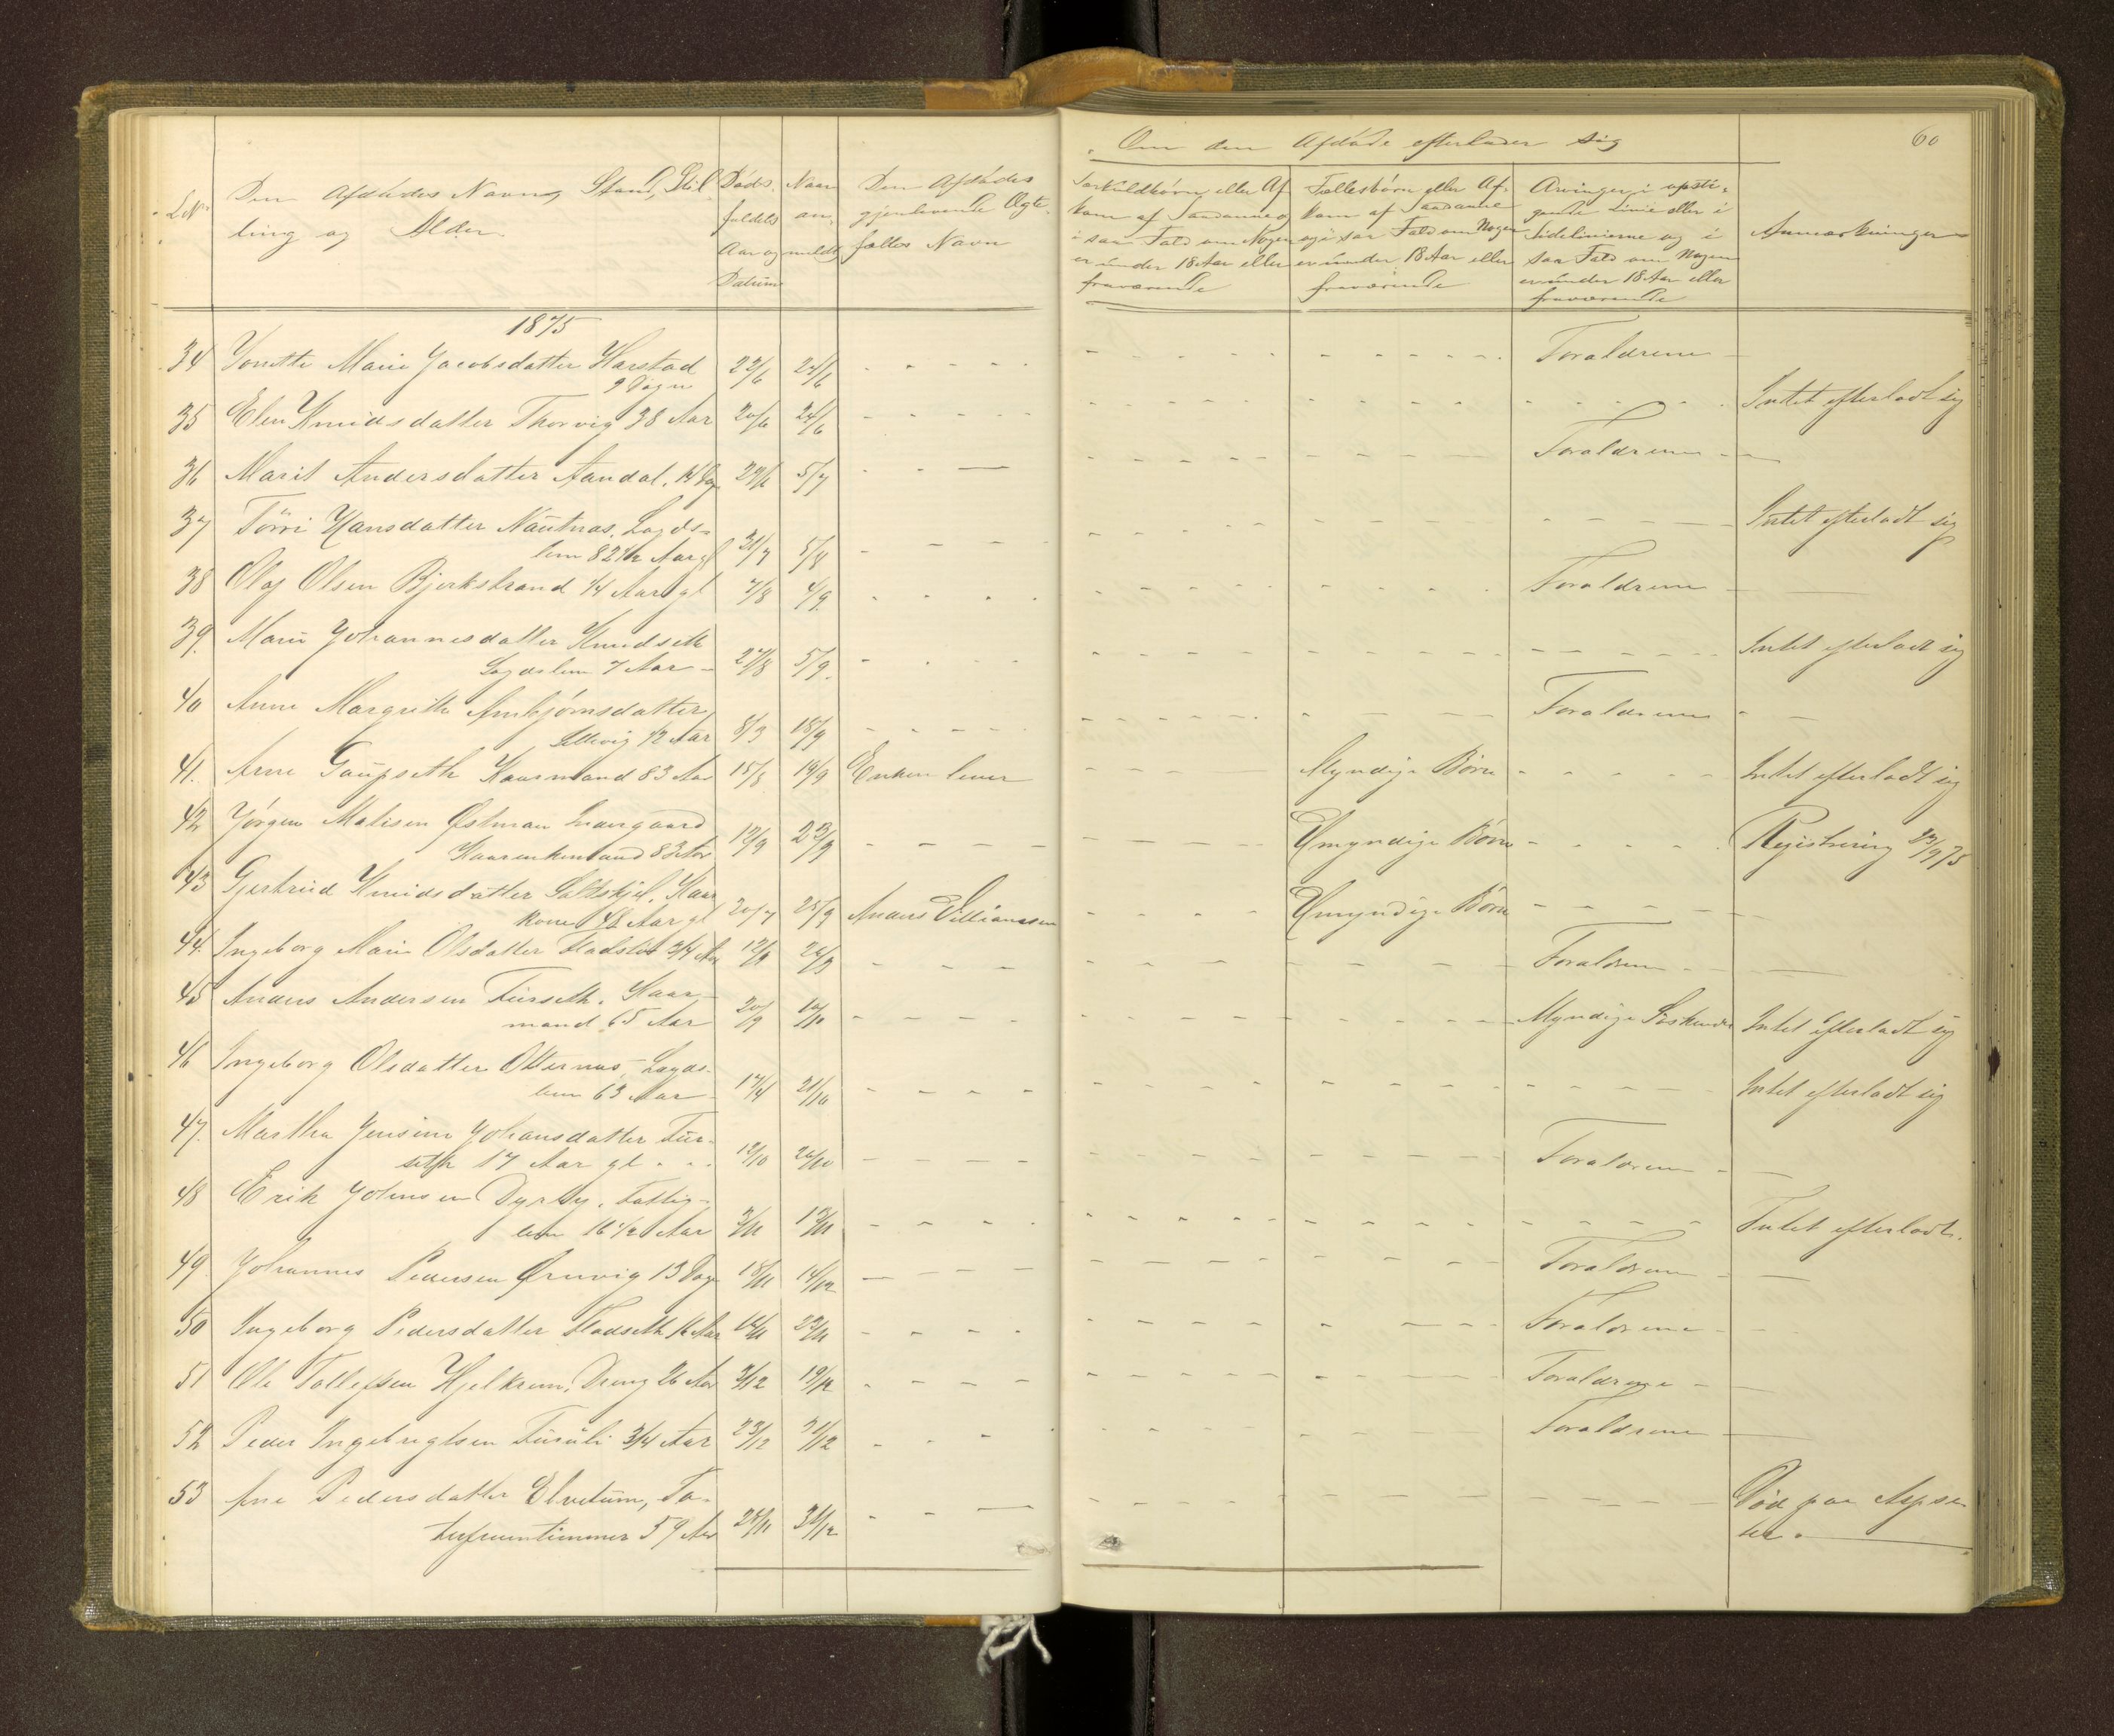 60
Om den Afdøde efterlader sig
L.No Den Afdødes Navn, Stand, Stil- ling og Alder. Døds- faldets Aar og Datum Naar an- meldt Den Afdødes gjenlevende Ægte- fælles Navn Særkuldbørn eller Af- kom af saadanne og i saa Fald om Nogen er under 18 Aar eller fraværende Fællesbørn eller Af- kom af saadanne og i saa Fald om Nogen er under 18 Aar eller fraværende Arvinger i opsti- gende Linie eller i Sidelinierne og i saa Fald om Nogen er under 18 Aar eller fraværende Anmærkninger
1875
34 Jonette Marie Jacobsdatter Harstad 22/6 24/6 Forældrene
9 Dage
35 Elen Knudsdatter Thorvig 38 Aar 20/6 24/6 Intet efterladt sig
36 Marit Andersdatter Aandal, 14 Dag 5/7 Forældrene
37 Hansdatter Lægds- Intet efterladt sig
lem 82 1/2 Aar gl 31/7 5/8
38 Olaf Olsen Bjerkstrand 1/4 Aar gl 7/8 4/9 Forældrene
39. Marie Johannesdatter Knudseth
Lægdslem 7 Aar 27/8 5/9. Intet efterladt sig
40 Anne Margrethe Arnbjørnsdatter Forældrene
1/2 Aar 8/3 18/9
41. Arne Gaupseth Kaarmand 83 Aar 15/8 19/9 Enken lever Myndige Børn Intet efterladt sig
42 Jørgen Østman Indergaard
Kaarenkemand 83 Aar 12/9 23/9 Umyndige Børn Registrering 23/9 75
43 Gjertrud Knudsdatter Saltskjel, Kaar
kone 48 Aar gl 20/7 25/9 Anders Umyndige Børn
44. Ingeborg Marie Olsdatter 3/4 Aar 12/9 Forældrene
45 Anders Andersen Furseth. Kaar-
mand 65 Aar 20/9 10/10 Myndige Søskende Intet efterladt sig
46 Ingeborg Olsdatter Otternes, Lægds-
lem 63 Aar 21/10 Intet efterladt sig
47. Martha Jensine Johansdatter Fur-
seth 17 Aar gl 12/10 26/10 Forældrene
48 Erik Johnsen Fattig-
lem 16 1/2 Aar 3/11 12/11 Intet efterladt.
49 Johannes Pedersen Ørnvig 13 Dage 18/11 14/12 Forældrene
50 Ingeborg Pedersdatter Fladseth Aar 14/11 29/11 Forældrene
51 Ole Tollefsen Hjelkrem, Dreng 26 Aar 3/12 19/12 Forældrene
52 Peder Ingebrigtsen Fursüli 3/4 Aar 23/12 31/12 Forældrene
53 Ane Pedersdatter Elvetun, Fa- Død paa Repse-
tigfruentimmer 59 Aar 25/11 31/12